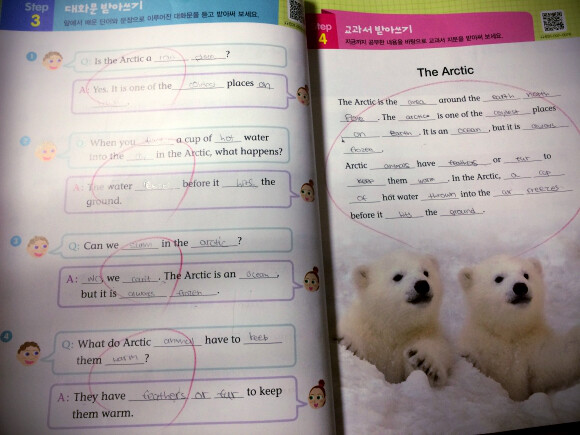 Step 3
대화문 받아쓰기
앞에서 배운 단어와 문장으로 이루어진 대화문을 듣고 받아써 보세요.
1
Q: Is the Arctic a ?
A: Yes. It is one of the coldest places on
. It is an
2
Q: When you a cup of hot water
into the in the Arctic, what happens?
A: The water before it hits the
ground.
3
Q: Can we in the arctic ?
A: No, we can't. The Arctic is an ocean,
but it is always frozen.
4
Q: What do Arctic animal have to keep
them warm?
A: They have feathers or fur to keep
them warm.
Step 4
교과서 받아쓰기
지금까지 공부한 내용을 바탕으로 교과서 지문을 받아써 보세요.
The Arctic
The Arctic is the area around the earth north
. The arctic is one of the coldest places
on Earth. It is an ocean, but it is always
frozen.
Arctic animals have feathers or fur to
keep them warm. In the Arctic, a cup
of hot water thrown into the air freezes
before it hits the ground.